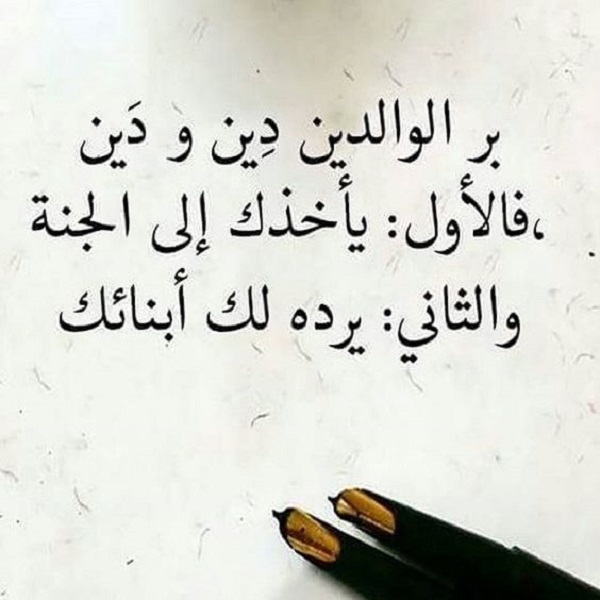 بر الوالدين دِين و دَين
،فالأول: يأخذك إلى الجنة
والثاني: يرده لك أبنائك